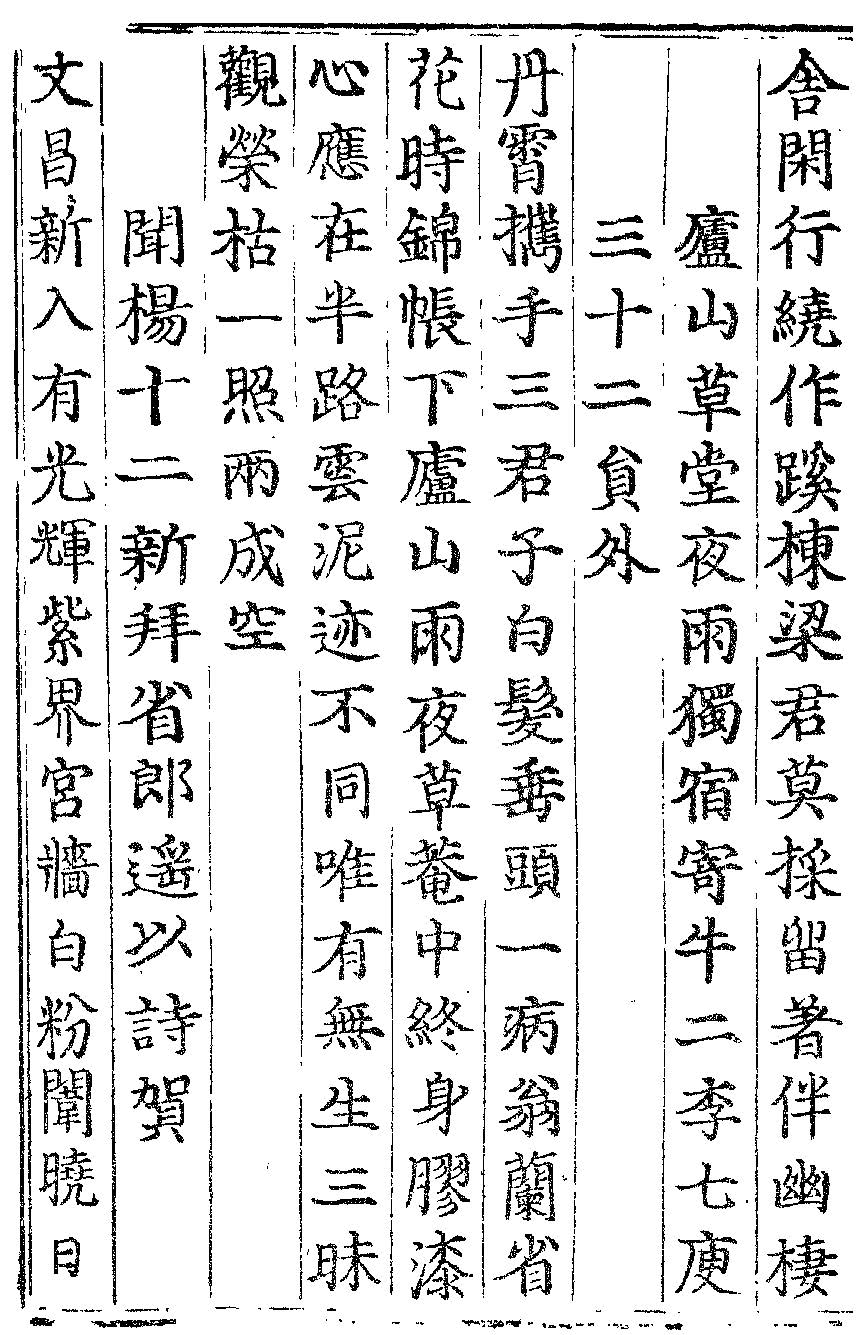 舎閑行繞作蹊棟梁君莫採留著伴幽棲
廬山草堂夜雨獨宿寄牛二李七庾
三十二貟外
丹霄攜手三君子白髮垂頭一病翁蘭省
花時錦帳下廬山雨夜草菴中終身膠漆
心應在半路雲泥迹不同唯有無生三昧
觀榮枯一照兩成空
聞楊十二新拜省郎遥以詩賀
文昌新入有光輝紫界宮牆白粉闈曉日